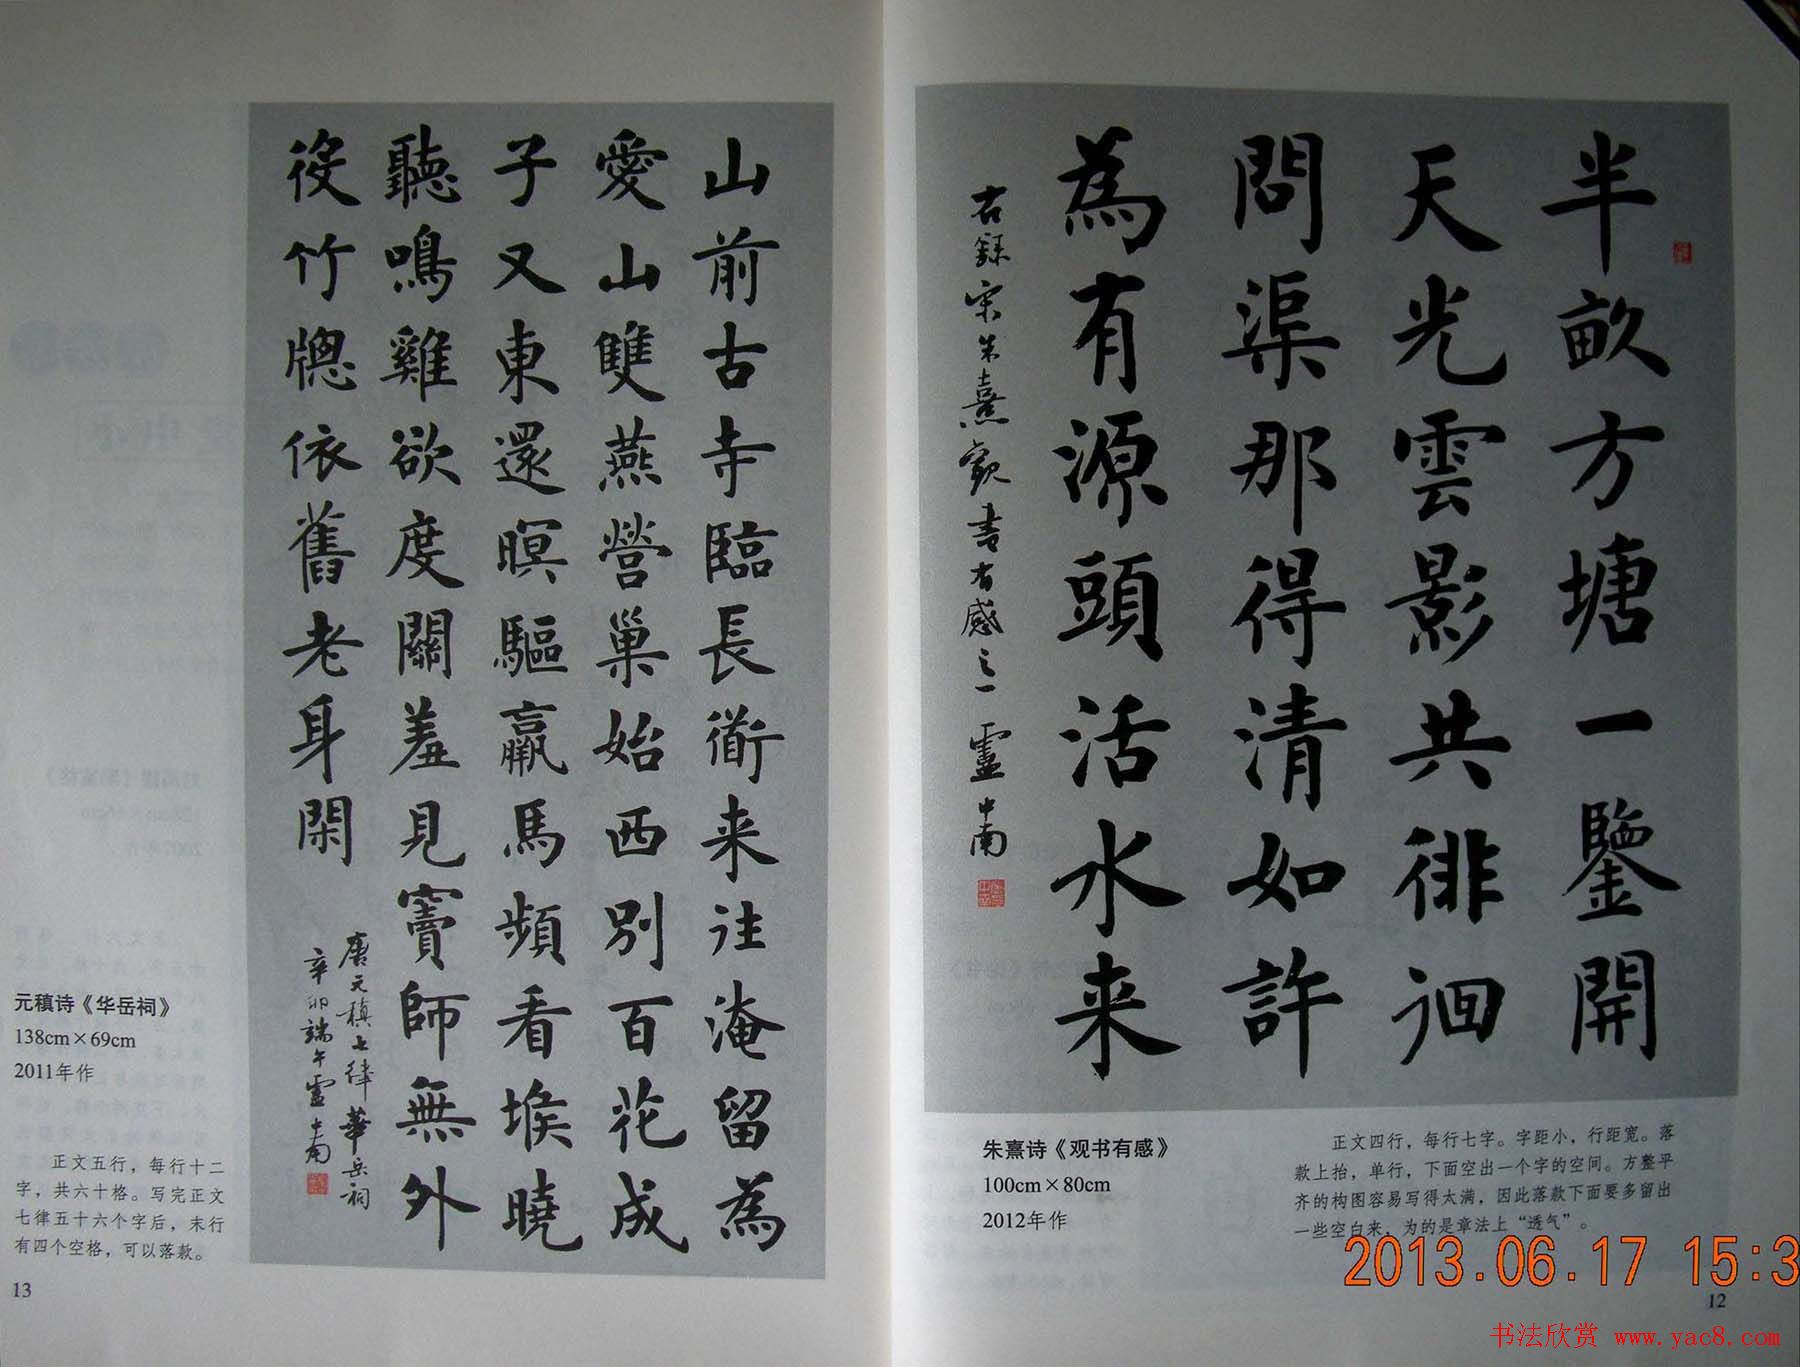 半畝方塘一鑒開
天光雲影共徘徊
問渠那得清如許
為有源頭活水来
右録宋朱熹觀書有感之一 盧中南
朱熹诗《观书有感》
100cm×80cm
2012年作
正文四行，每行七字。字距小，行距宽。落
款上抬，单行，下面空出一个字的空间。方整平
齐的构图容易写得太满，因此落款下面要多留出
一些空白来，为的是章法上“透气”。
12
山前古寺臨長衜来往淹留為
愛山雙燕營巢始西別百花成
子又東還暝驅羸馬頻看堠曉
聽鳴雞欲度關羞見竇師無外
役竹牕依舊老身閑
唐元稹七律華岳祠
辛卯端午盧中南
元稹诗《华岳祠》
138cm×69cm
2011年作
正文五行，每行十二
字，共六十格。写完正文
七律五十六个字后，末行
有四个空格，可以落款。
13
2013.06.17 15:3
书法欣赏 www.yac8.com